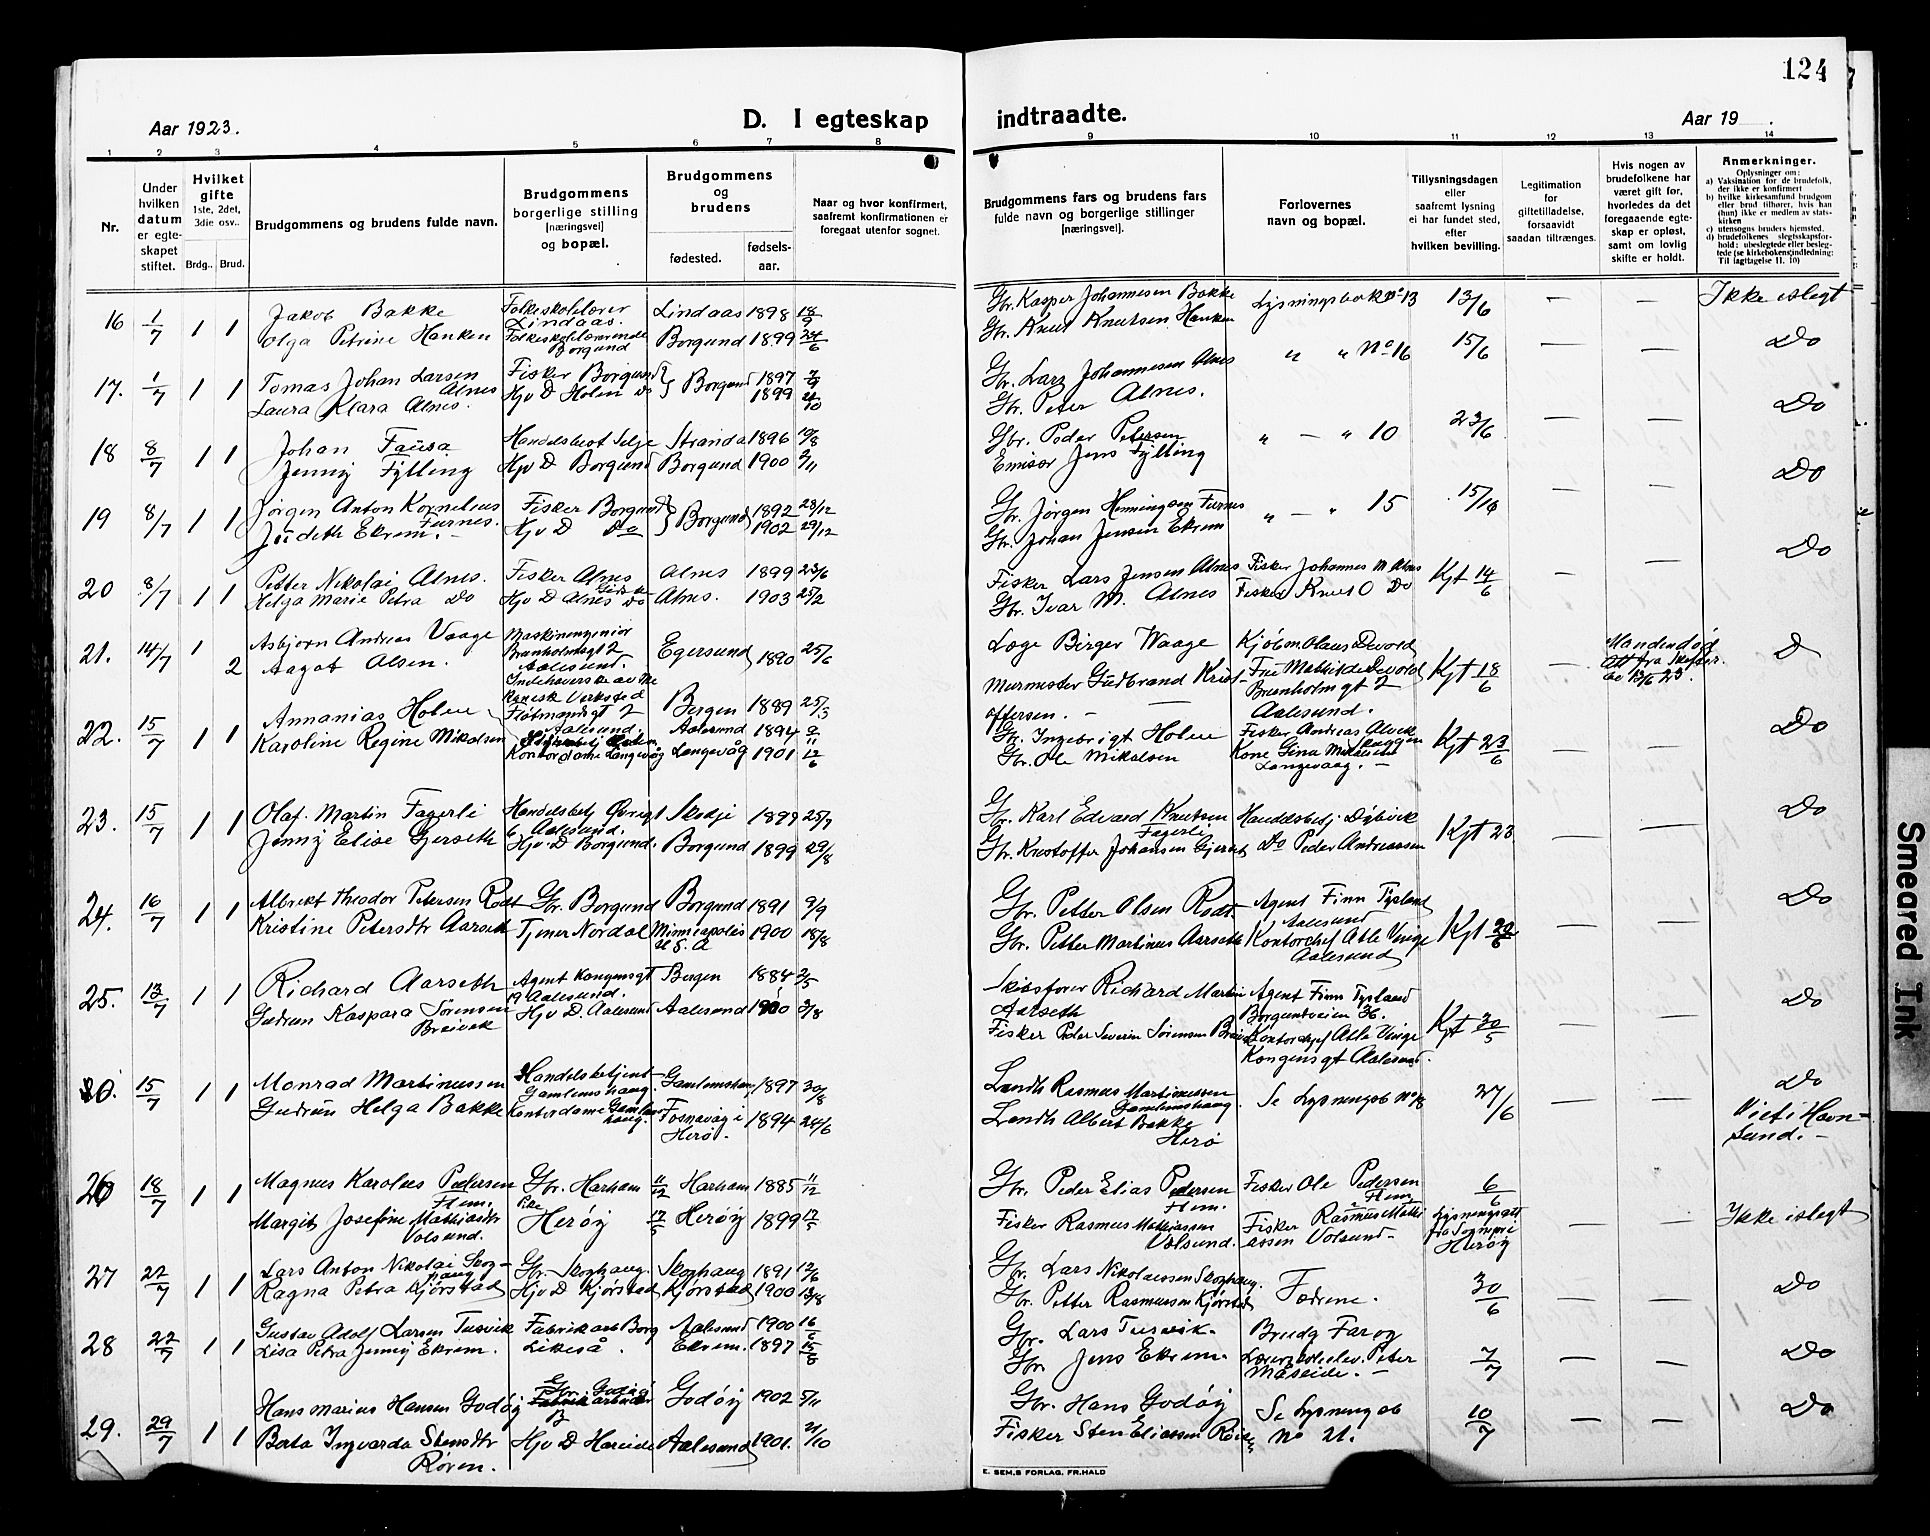 124
Aar 1923.
D. I egteskap indtraadte.
Aar 19 .
1 2 3 4 5 6 7 8 9 10 11 12 13 14
Nr.
Under hvilken datum er egteskapet stiftet.
Hvilket gifte 1ste, 2det, 3die osv..
Brdg.. Brud.
Brudgommens og brudens fulde navn.
Brudgommens borgerlige stilling [næringsvei] og bopæl.
Brudgommens og brudens
fødested. fødsels-aar.
Naar og hvor konfirmert, saafremt konfirmationen er foregaat utenfor sognet.
Brudgommens fars og brudens fars fulde navn og borgerlige stillinger [næringsvei].
Forlovernes navn og bopæl.
Tillysningsdagen eller saafremt lysning ei har fundet sted, efter hvilken bevilling.
Legitimation for giftetilladelse, forsaavidt saadan tiltrænges.
Hvis nogen av brudefolkene har været gift før, hvorledes da det foregaaende egteskap er opløst, samt om lovlig skifte er holdt.
Anmerkninger.
Oplysninger om:
a) Vaksination for de brudefolk, der ikke er konfirmert
b) hvilke kirkesamfund brudgom eller brud tilhører, hvis han (hun) ikke er medlem av statskirken
c) utensogns bruders hjemsted.
d) brudefolkenes slegtsskapsforhold: ubeslegtede eller beslegtede (se kirkebokens indledning: Til Iagttagelse II. 10)
16 1/7 1 1 Jakob Bakke Folkeskolelærer Lindaas. Lindaas 1898 18/9 Gbr. Kasper Johannesen Bakke Lysningsbok No 13 13/6 — — Ikke i slegt
Olga Petrine Hanken Folkeskolelærerinde Borgund Borgund 1899 24/6 Gbr. Knut Knutsen Hanken
17. 1/7 1 1 Tomas Johan Larsen Alnes Fisker Borgund } Borgund 1897 Gbr. Lars Johannesen Alnes " " No 16 15/6 — — Do
Laura Klara Alnes. Hjv D Holen Do 1899 Gbr. Peter Alnes.
18 8/7 1 1 Johan Fausa Handelsbest Selje Stranda 1896 Gbr. Peder Petersen " — " 10 23/6 — — Do
Jenny Fylling Hjv D Borgund Borgund 1900 2/11 Emisær Jens Fylling
19 8/7 1 1 Jørgen Anton Kornelius Furnes. Fisker Borgund } Borgund 1892 28/12 Gbr. Jørgen Henningsen Furnes " — " 15 — — Do
Judeth Ekrem. Hjv D Do 1902 29/12 Gbr. Johan Jensen Ekrem
20 8/7 1 1 Petter Nikolai Alnes. Fisker Alnes Alnes 1899 23/6 Fisker Lars Jensen Alnes Fisker Johannes M Alnes Kgt 14/6 — — Do
Helga Marie Petra Do Hjv D Alnes Do Alnes. 1903 25/2 Gbr. Ivar M. Alnes Fisker Knut O Do
21. 14/7 1 Asbjørn Andreas Vaage Maskiningeniør Brunholmgt 2 Aalesund. Egersund 1890 25/6 Læge Birger Waage Kjøbm. Olaus Devold Kgt 18/6 — D
2 Aagot Olsen. Fløtmandsgt 2 Aalesund Bergen 1889 25/3 Murmester Gudbrand Kristoffersen. Frue Mathilde Devold Brunholmgt 2 Aalesund.
22. 15/7 1 1 Annanias Holen Aalesund 1894 Gbr. Ingebrigt Holen Fisker Andreas Alvik Kgt 23/6 — — Do
Karoline Regine Mikalsen Kontordame Langevåg Langevåg 1901 12/6 Gbr. Ole Mikalsen Kone Gina Mikalsen Langevaag.
23. 15/7 1 1 Olaf. Martin Fagerli Handelsbetj Aalesund. Skodje 1897 25/7 Gbr. Karl Edvard Knutsen Fagerli. Handelsbetj. Dybvik Kgt 23 — — Do
Jenny Elise Gjerseth Hjv. D Borgund. Borgund 1899 29/8 Gbr. Kristoffer Johansen Gjerset Do Peder Andreassen
24. 16/7 1 1 Albrekt Theodor Petersen Rødt Gbr. Borgund Borgund 1891 9/9 Gbr. Petter Olsen Rødt. Agent Finn Tysland Aalesund — — Do
Kristine Petersdtr Aarseth Tjener Nørdal Minneapolis U.S.A 1900 18/8 Gbr. Petter Martinus Aarseth Kontorchef Atle Vinge Aalesund
25. 13/7 1 1 Richard Aarseth Agent Kongensgt 19 Aalesund. Bergen 1884 2/5 Skibsfører Richard Martin Aarseth Agent Finn Tysland Borgundveien 36. Kgt 30/5 — — Do
Gudrun Kaspara Sørensen Breivik Hjv D. Aalesund Aalesund 1900 3/8 Fisker Peder Severin Sørensen Kontorchef Atle Vinge Kongensgt Aalesund.
15/7 1 1 Monrad Martinussen Handelsbetjent Gamlemshaug. Gamlemshaug 1897 30/8 Landh Rasmus Martinussen Gamlemshaug. Se Lysningsb No 18 27/6 — — Do
Gudrun Helga Bakke Kontordame Gamlemshaug. Fosnavåg i Herø. 1894 24/6 Landh Albert Bakke Herø Viet i Havnsund.
26 18/7 1 1 Magnus Karolus Pedersen Flem. Gbr. Harham 11/12 Harham 1885 11/12 Gbr. Peder Elias Pedersen Flem. Fisker Ole Pedersen Flem 6/6 — — Ikke i slegt
Margit Josefine Mathiasdtr Volsund. Pike Herøy Herøy 1899 Fisker Rasmus Mathiassen Volsund. Fisker Rasmus Mathiassen Volsund Lysningsatt fra Sognepr i Herøy
27 22/7 1 1 Lars Anton Nikolai Skoghaug Gbr. Skoghaug. Skoghaug 1891 12/6 Gbr. Lars Nikolaissen Skoghaug. Fædrene. 30/6 — — Do
Ragna Petra Kjørstad Hjv D Kjørstad Kjørstad 1900 13/8 Gbr. Petter Rasmussen Kjørstad
28 22/7 1 1 Gustav Adolf Larsen Tusvik Fabrikarb Borg Aalesund 1900 Gbr. Lars Tusvik. Brudg Far og 7/7 — — Do
Lisa Petra Jenny Ekrem. Likeså. Ekrem. 1897 15/8 Gbr Jens Ekrem Peter Måseide.
29. 29/7 1 1 Hans Marius Hansen Godøy Gbr. Godøy Godøy 1902 5/11 Gbr. Hans Godøy Se Lysningsb No 21. 10/7 — — Do
Berta Ingvarda Stensdtr Røren. Hjv D Hareide Aalesund 1901. 21/10 Fisker Sten Eliassen Røren
E. SEM.S FORLAG, FR.HALD
Smeared Ink